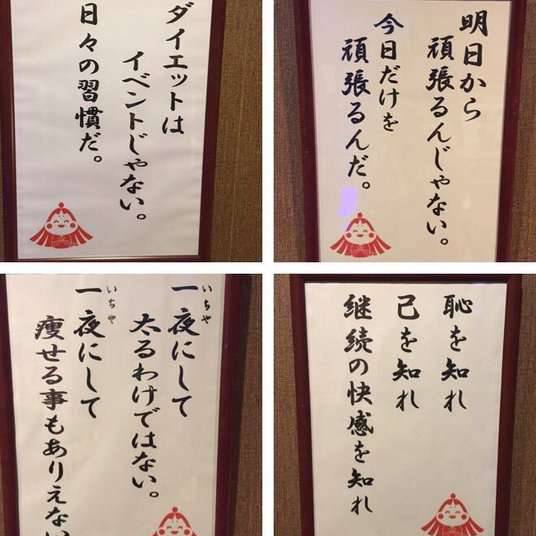 ダイエットは
イベントじゃない。
日々の習慣だ。
明日から
頑張るんじゃない。
今日だけを
頑張るんだ。
一夜にして
いちや
太るわけではない。
一夜にして
いちや
痩せる事もありえない
恥を知れ
己を知れ
継続の快感を知れ